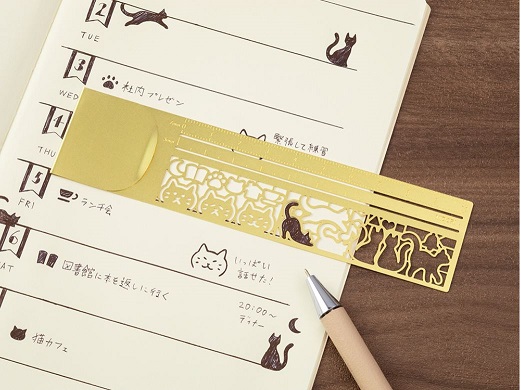 2
TUE
3
WED
社内プレゼン
4
THU
緊張して練習
5
FRI
ランチ会
6
SAT
図書館に本を返しに行く
いっぱい
話せた!
20:00〜
ディナー
猫カフェ